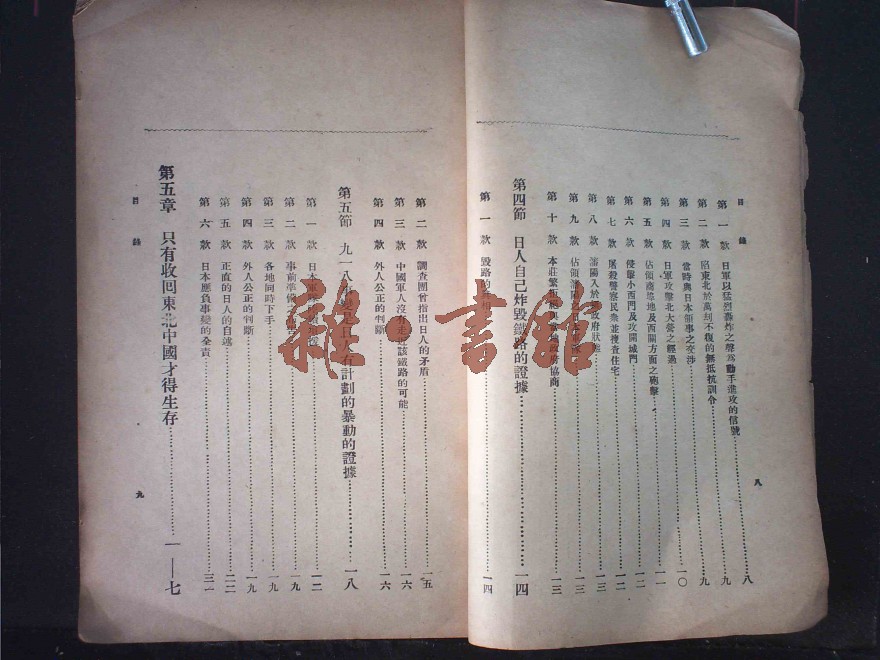 目錄
第一款 日軍以猛烈轟炸之聲為動手進攻的信號……八
第二款 陷東北於萬刦不復的無抵抗訓令……九
第三款 當時與日本領事之交涉……九
第四款 日軍攻擊北大營之經過……一〇
第五款 佔領商埠地及西關方面之砲擊……一一
第六款 侵擊小西門及攻開城門……一二
第七款 屠殺警察民衆並搜查住宅……一二
第八款 瀋陽入於無政府狀態……一三
第九款 佔領瀋陽……一三
第十款 本莊繁……政府協商……一三
第四節 日人自己炸毀鐵路的證據……一四
第一款 毀路的……一四
八
第二款 調查團曾指出日人的矛盾……一五
第三款 中國軍人沒有走近該鐵路的可能……一六
第四款 外人公正的判斷……一六
第五節 九一八事變是日人有計劃的暴動的證據……一八
第一款 日本軍……一二
第二款 事前準備之……一九
第三款 各地同時下手……一九
第四款 外人公正的判斷……一九
第五款 正直的日人的自述……二二
第六款 日本應負事變的全責……三一
第五章 只有收回東北中國才得生存……一——七
目錄
九
雜·書館